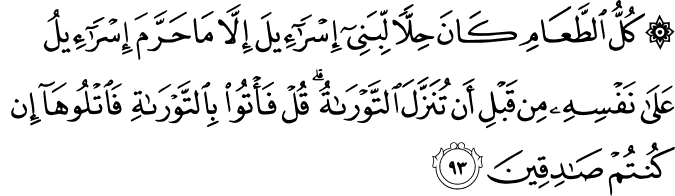 ۞ كُلُّ ٱلطَّعَامِ كَانَ حِلًّا لِّبَنِيٓ إِسْرَٰٓءِيلَ إِلَّا مَا حَرَّمَ إِسْرَٰٓءِيلُ
عَلَىٰ نَفْسِهِۦ مِن قَبْلِ أَن تُنَزَّلَ ٱلتَّوْرَىٰةُۗ قُلْ فَأْتُوا۟ بِٱلتَّوْرَىٰةِ فَٱتْلُوهَآ إِن
كُنتُمْ صَٰدِقِينَ ٩٣